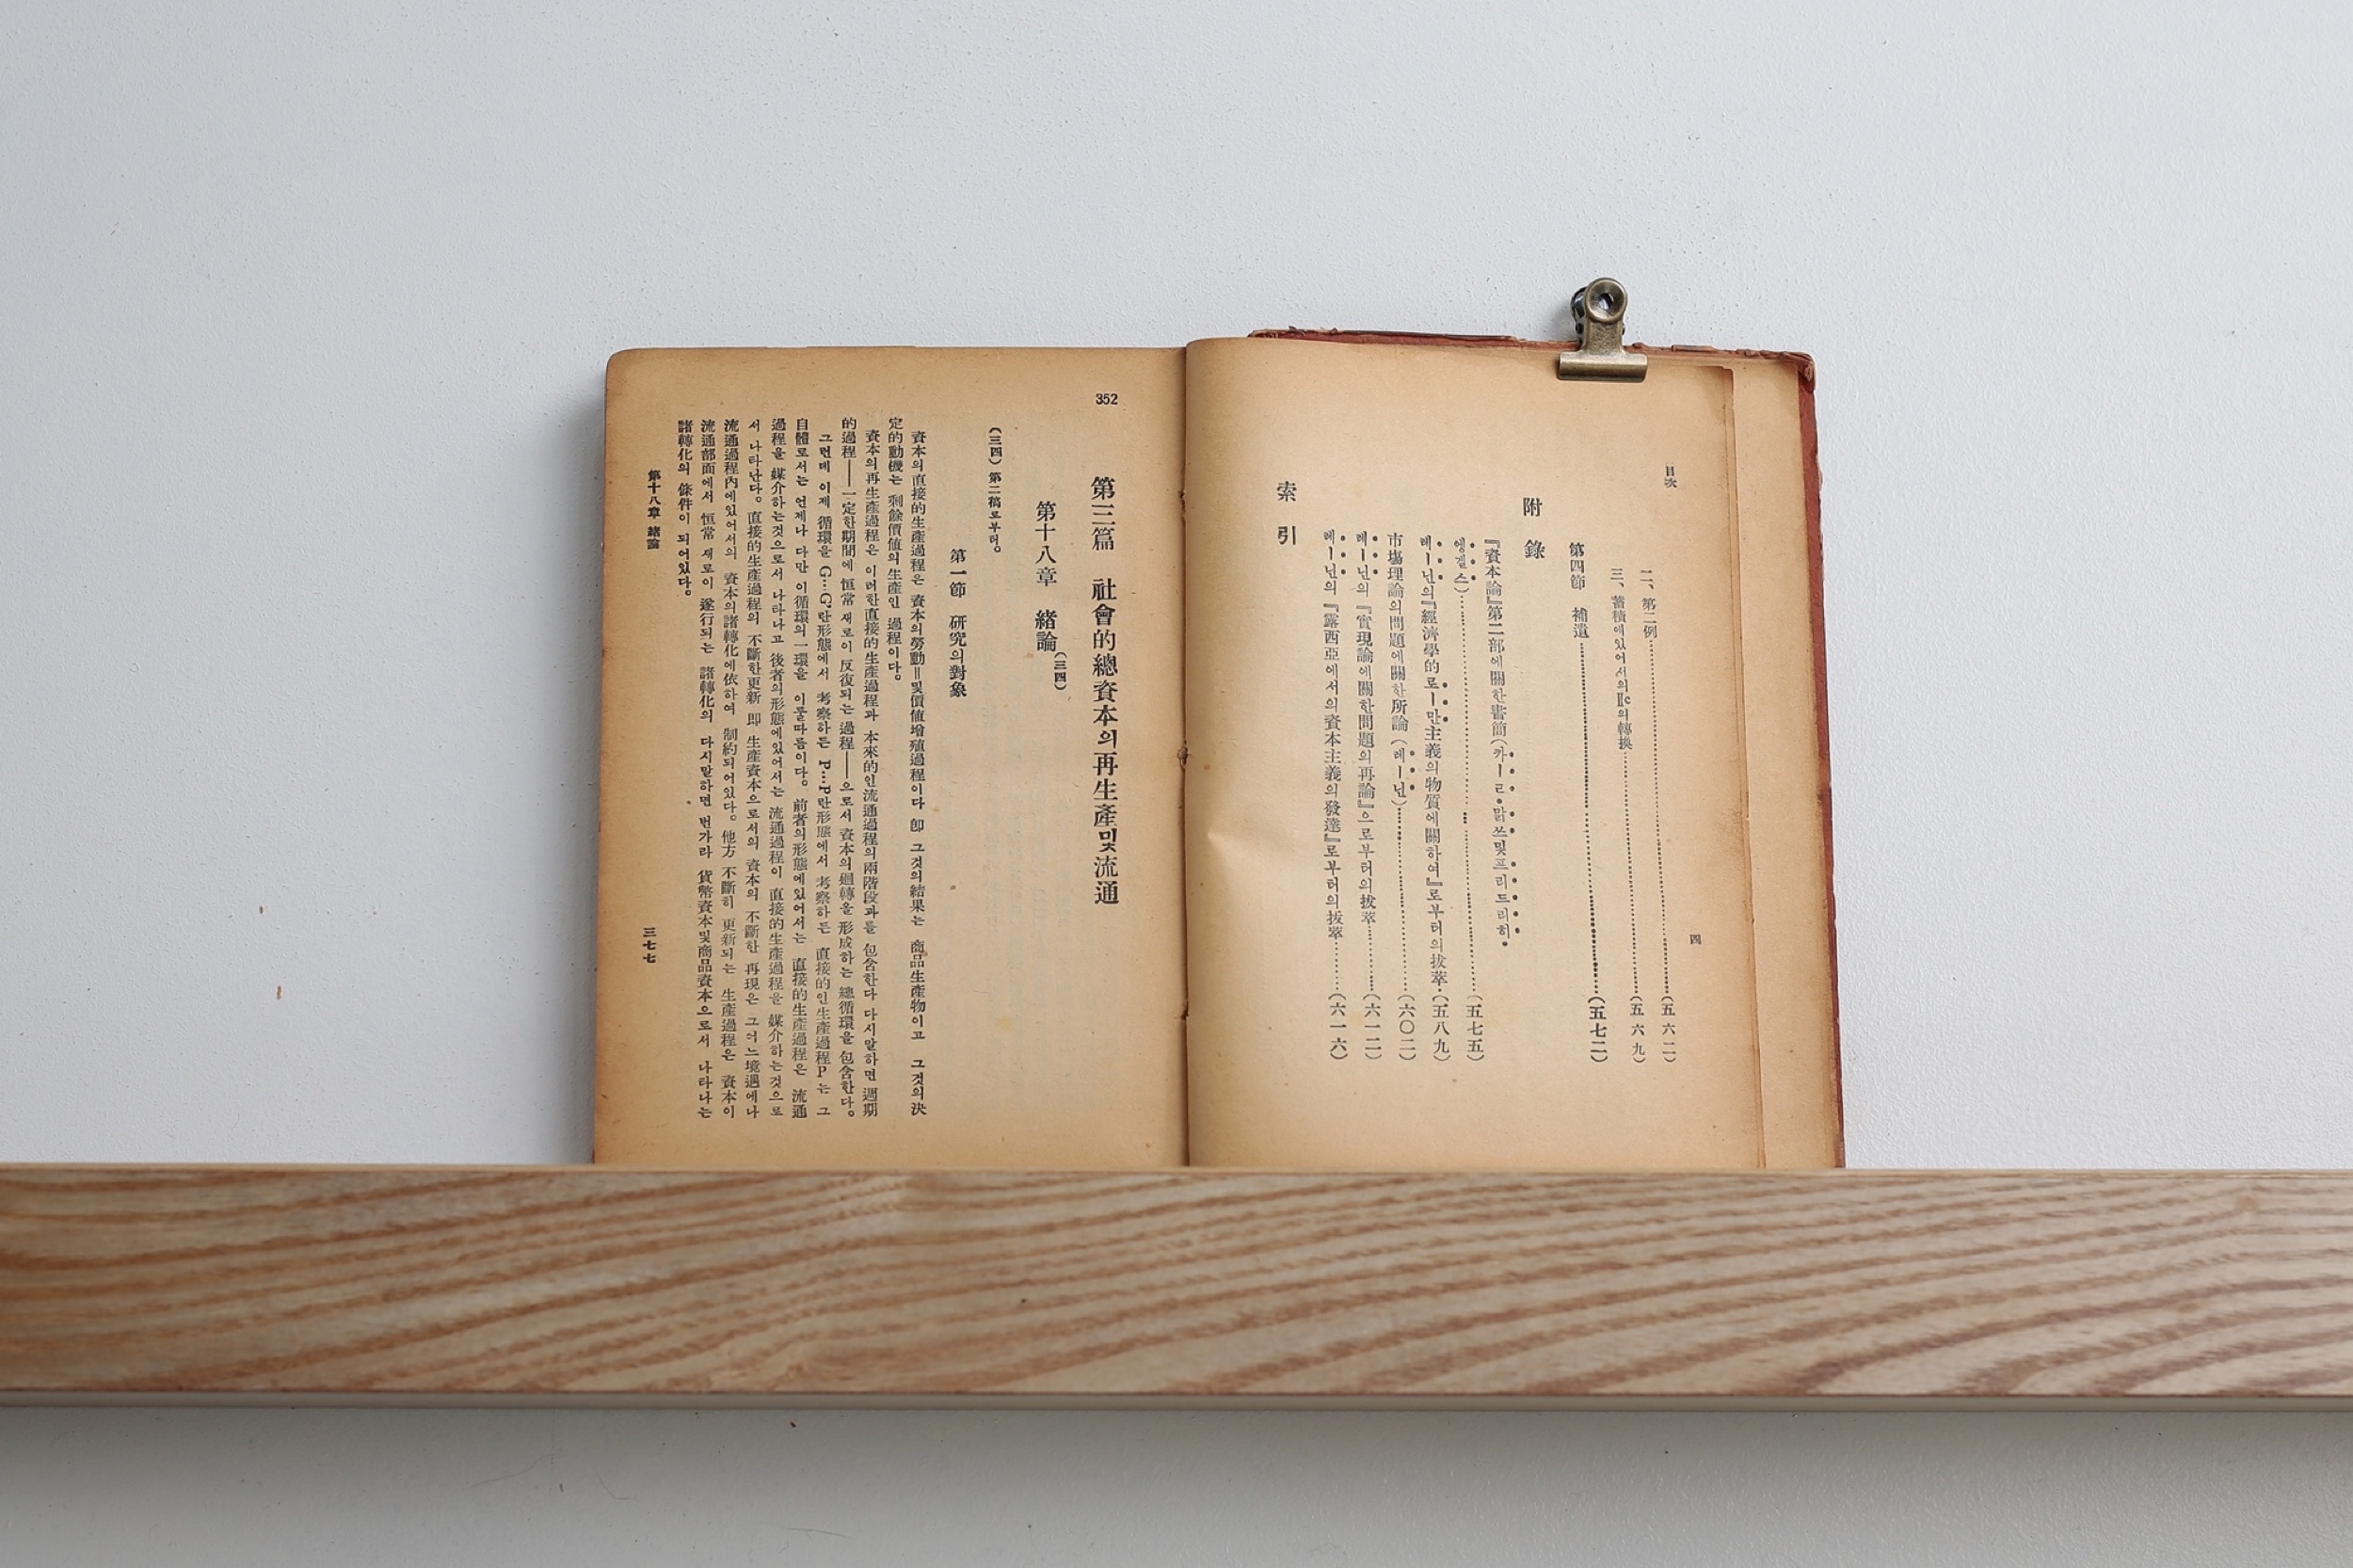 目次
四
二、第二例……(五六二)
三、蓄積에있어서의Ⅱc의轉換……(五六九)
第四節 補遺……(五七二)
附錄
『資本論』第二部에關한書簡(카ーㄹ·맑쓰및프리드리히·
엥겔스)……(五七五)
레ー닌의『經濟學的로ー만主義의物質에關하여』로부터의拔萃…(五八九)
市場理論의問題에關한所論(레ー닌)……(六〇二)
레ー닌의『實現論에關한問題의再論』으로부터의拔萃……(六一二)
레ー닌의『露西亞에서의資本主義의發達』로부터의拔萃……(六一六)
索引
352
第三篇 社會的總資本의再生產및流通
第十八章 緖論(三四)
(三四) 第二稿로부터。
第一節 硏究의對象
資本의直接的生產過程은 資本의勞動=및價値增殖過程이다 卽 그것의結果는 商品生產物이고 그것의決
定的動機는 剩餘價値의生產인 過程이다。
資本의再生產過程은 이러한直接的生產過程과 本來的인流通過程의兩階段과를 包含한다 다시말하면 週期
的過程——一定한期間에 恒常 새로이 反復되는 過程——으로서 資本의廻轉을 形成하는 總循環을 包含한다。
그런데 이제 循環을 G…G′란形態에서 考察하든 P…P란形態에서 考察하든 直接的인生產過程P는 그
自體로서는 언제나 다만 이循環의一環을 이룰따름이다。 前者의形態에있어서는 直接的生產過程은 流通
過程을 媒介하는것으로서 나타나고 後者의形態에있어서는 流通過程이 直接的生產過程을 媒介하는것으로
서 나타난다。 直接的生產過程의 不斷한更新 卽 生產資本으로서의 資本의 不斷한 再現은 그어느境遇에나
流通過程內에있어서의 資本의諸轉化에依하여 制約되어있다。 他方 不斷히 更新되는 生產過程은 資本이
流通部面에서 恒常 새로이 遂行되는 諸轉化의 다시말하면 번가라 貨幣資本및商品資本으로서 나타나는
諸轉化의 條件이 되어있다。
第十八章 緖論
三七七